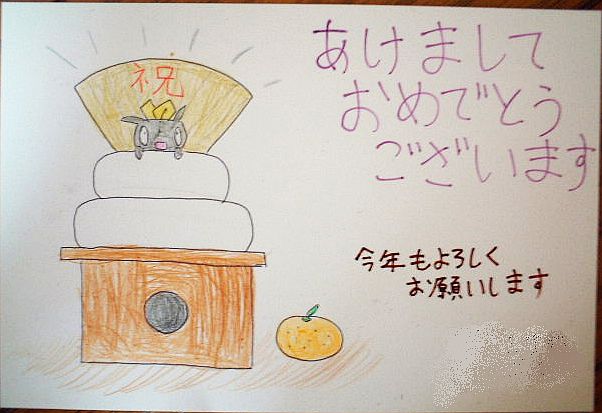 祝
あけまして
おめでとう
ございます
今年もよろしく
お願いします